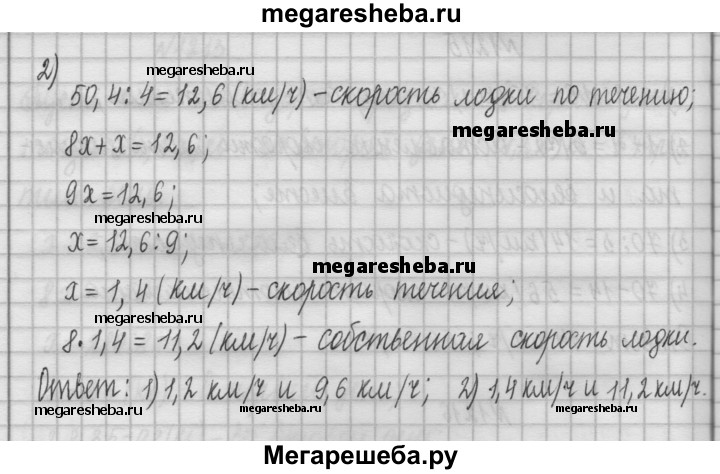 megaresheba.ru
2)
megaresheba.ru
50,4:4=12,6(км/ч)-скорость лодки по течению;
megaresheba.ru
8x+x=12,6;
9x=12,6;
megaresheba.ru
x=12,6:9;
megaresheba.ru
x=1,4(км/ч)-скорость течения;
megaresheba.ru
8·1,4=11,2(км/ч)-собственная скорость лодки.
Ответ: 1)1,2 км/ч и 9,6 км/ч; 2)1,4км/ч и 11,2км/ч.
megaresheba.ru megaresheba.ru megaresheba.ru
Мегарешеба.ру